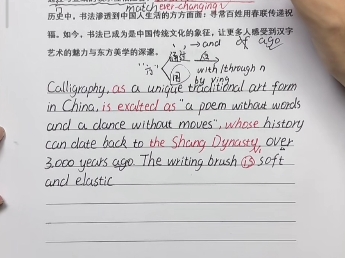 match ever-changing
历史中,书法渗透到中国人生活的方方面面:寻常百姓用春联传递祝
福。如今,书法已成为是中国传统文化的象征,让更多人感受到汉字
艺术的魅力与东方美学的深邃。
→and of ago
with/through n
by ving
Calligraphy, as a unique traditional art form
in China, is exalted as "a poem without words
and a dance without moves", whose history
can date back to the Shang Dynasty, over
3,000 years ago. The writing brush is soft
and elastic